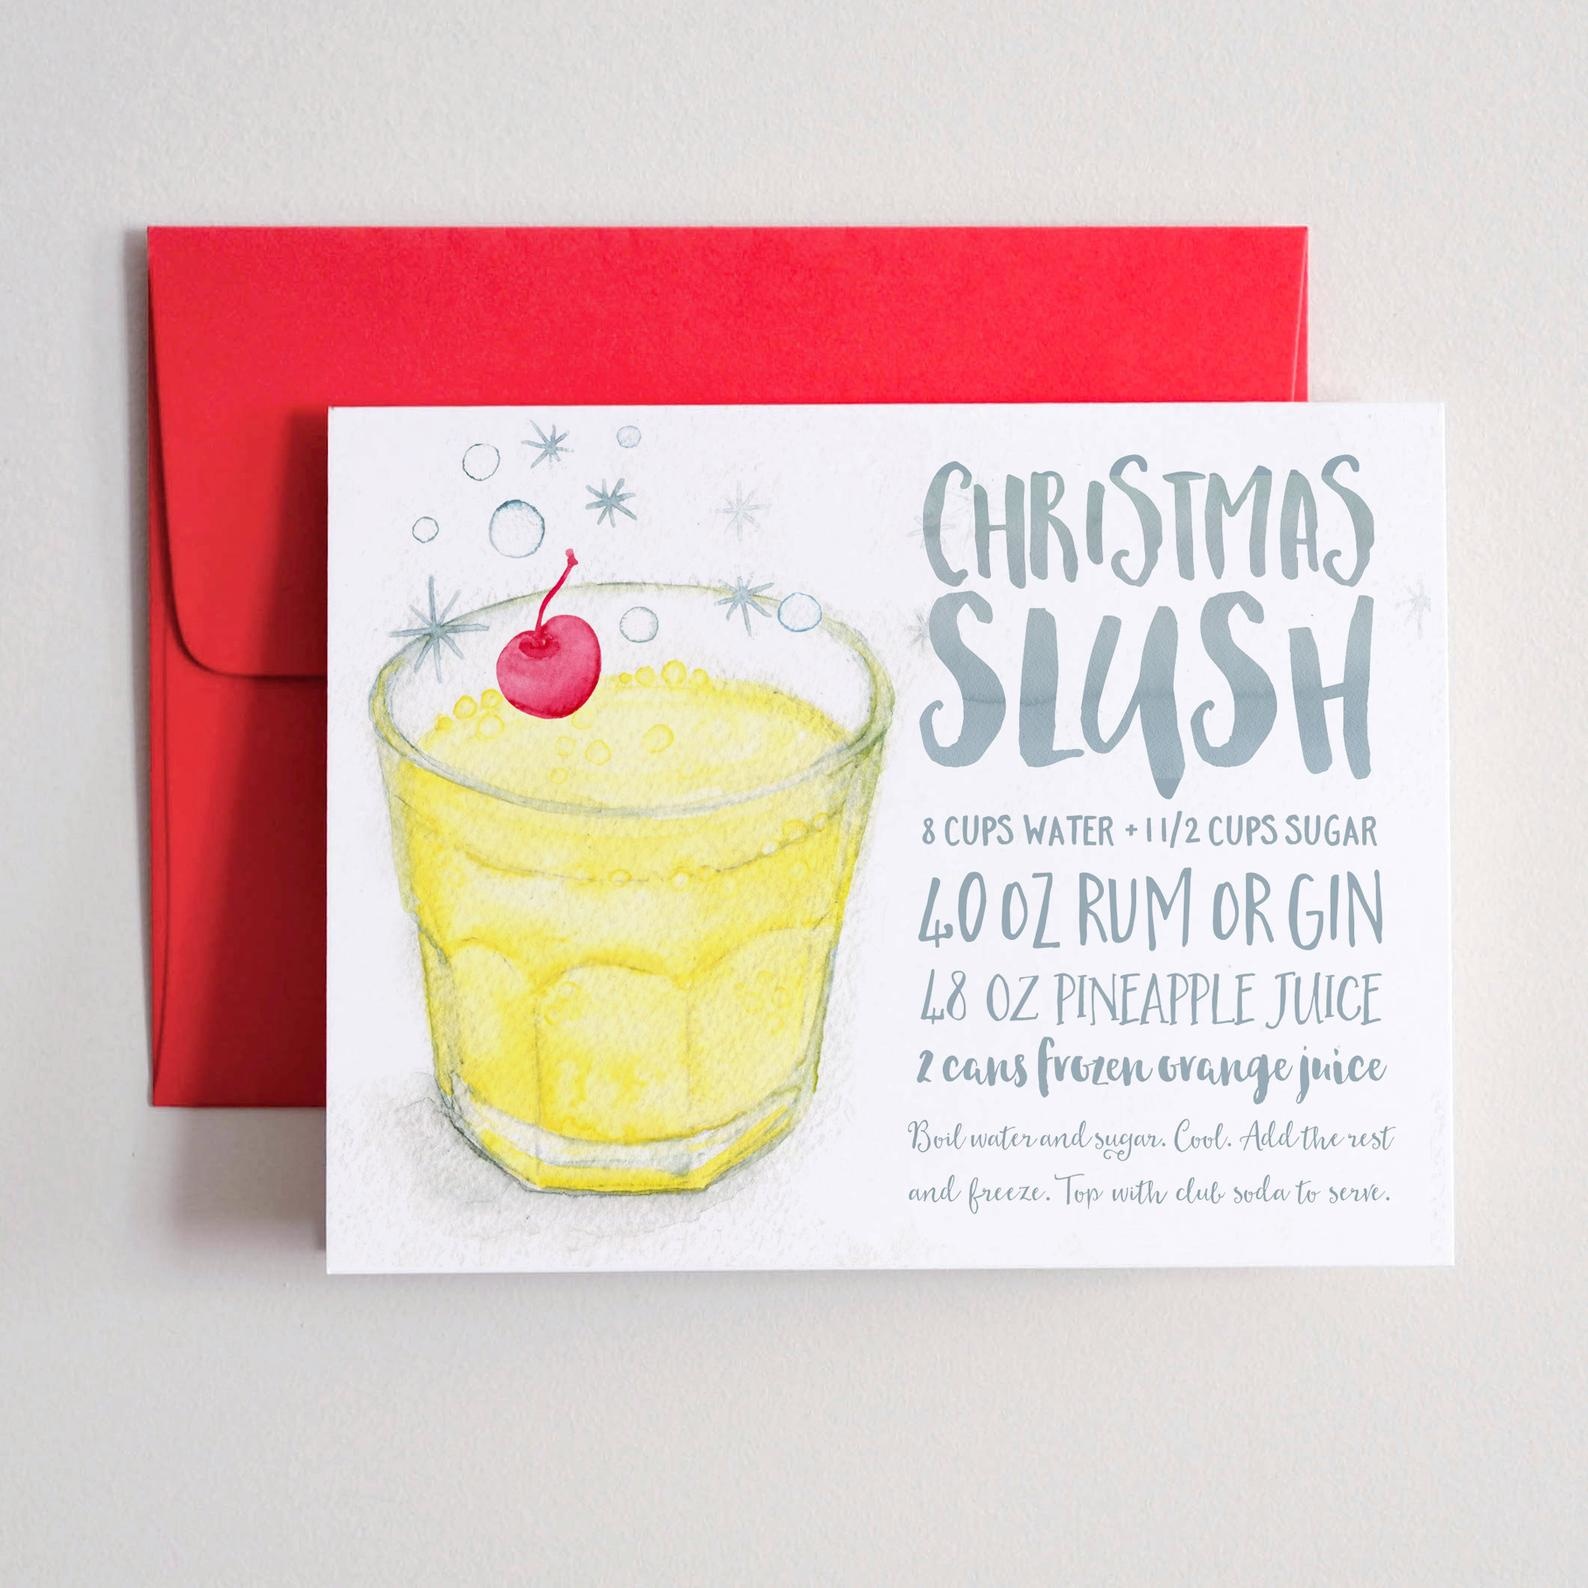 CHRISTMAS
SLUSH
8 CUPS WATER + 1 1/2 CUPS SUGAR
40 OZ RUM OR GIN
48 OZ PINEAPPLE JUICE
2 cans frozen orange juice
Boil water and sugar. Cool. Add the rest
and freeze. Top with club soda to serve.